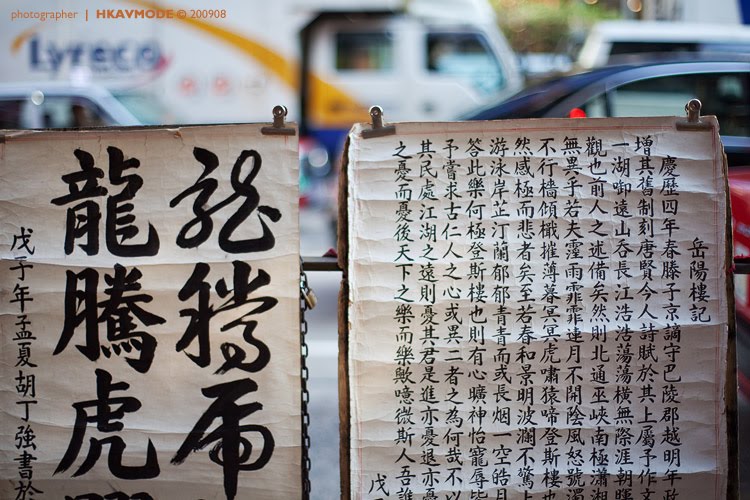 photographer | HKAVMODE © 200908
Lyreco
龍騰虎
龍騰虎
戊子年孟夏胡丁強書於
岳陽樓記
慶歷四年春滕子京謫守巴陵郡越明年政
增其舊制刻唐賢今人詩賦於其上屬予作文
一湖啣遠山吞長江浩浩蕩蕩橫無際涯朝暉
觀也前人之述備矣然則北通巫峽南極瀟湘
無異乎若夫霪雨霏霏連月不開陰風怒號濁
不行檣傾檝摧薄暮冥冥虎嘯猿啼登斯樓也
然感極而悲者矣至若春和景明波瀾不驚上
游泳岸芷汀蘭郁郁青青而或長烟一空皓月
答此樂何極登斯樓也則有心曠神怡寵辱皆
予嘗求古仁人之心或異二者之為何哉不以
其民處江湖之遠則憂其君是進亦憂退亦憂
之憂而憂後天下之樂而樂歟噫微斯人吾誰
戊